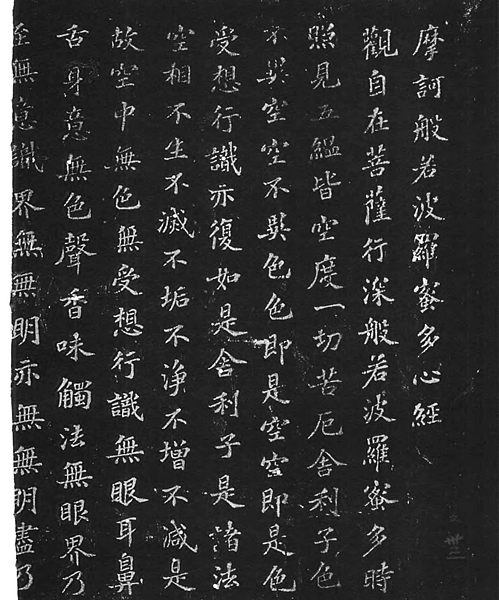 摩訶般若波羅蜜多心經
觀自在菩薩行深般若波羅蜜多時
照見五緼皆空度一切苦厄舍利子色
不異空空不異色色即是空空即是色
受想行識亦復如是舍利子是諸法
空相不生不滅不垢不淨不增不減是
故空中無色無受想行識無眼耳鼻
舌身意無色聲香味觸法無眼界乃
至無意識界無無明亦無無明盡乃